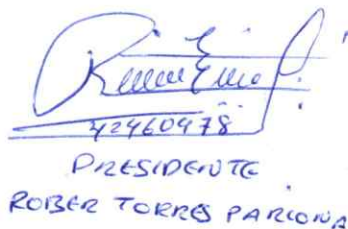 42460978
PRESIDENTE
ROBER TORRES PARIONA